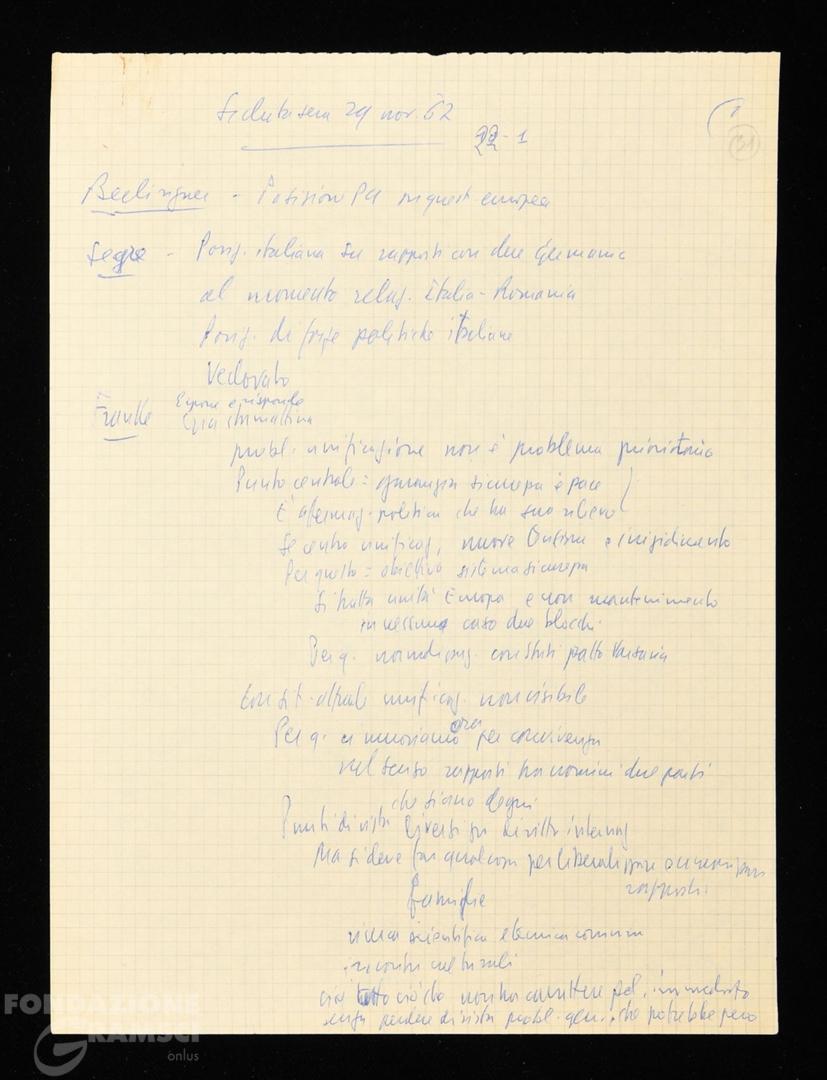 Seduta sera 29 nov. 62
22-1
1
31
Berlinguer - Posizion PCI su quest europea
Segre - Posiz. italiana su rapporti con due Germanie
al momento relaz. Italia-Romania
Posiz. di forze politiche italiane
Vedovato
Franke Espone e risponde
Già stamattina
probl. unificazione non è problema prioritario
Punto centrale = garanzia sicurezza e pace
E' afermaz. politica che ha suo rilievo
Se centro unificaz, nuove e irrigidimento
Per questo = obiettivo sistema sicurezza
Si tratta unità Europa e non mantenimento
in nessuno caso due blocchi.
Per q. con Stati patto Varsavia
Con sit. attuale unificaz. non visibile
Per q. ci muoviamo ora per convivenza
nel senso rapporti tra uomini due parti
che siano degni
Punti di vista diversi su diritto internaz
Ma si deve far qualcosa per liberalizzare
rapporti.
famiglie
ricerca scientifica e tecnica comune
incontri culturali
cioè tutto ciò che non ha carattere pol. immediato
senza perdere di vista probl. gen. che potrebbe però
FONDAZIONE
GRAMSCI
onlus